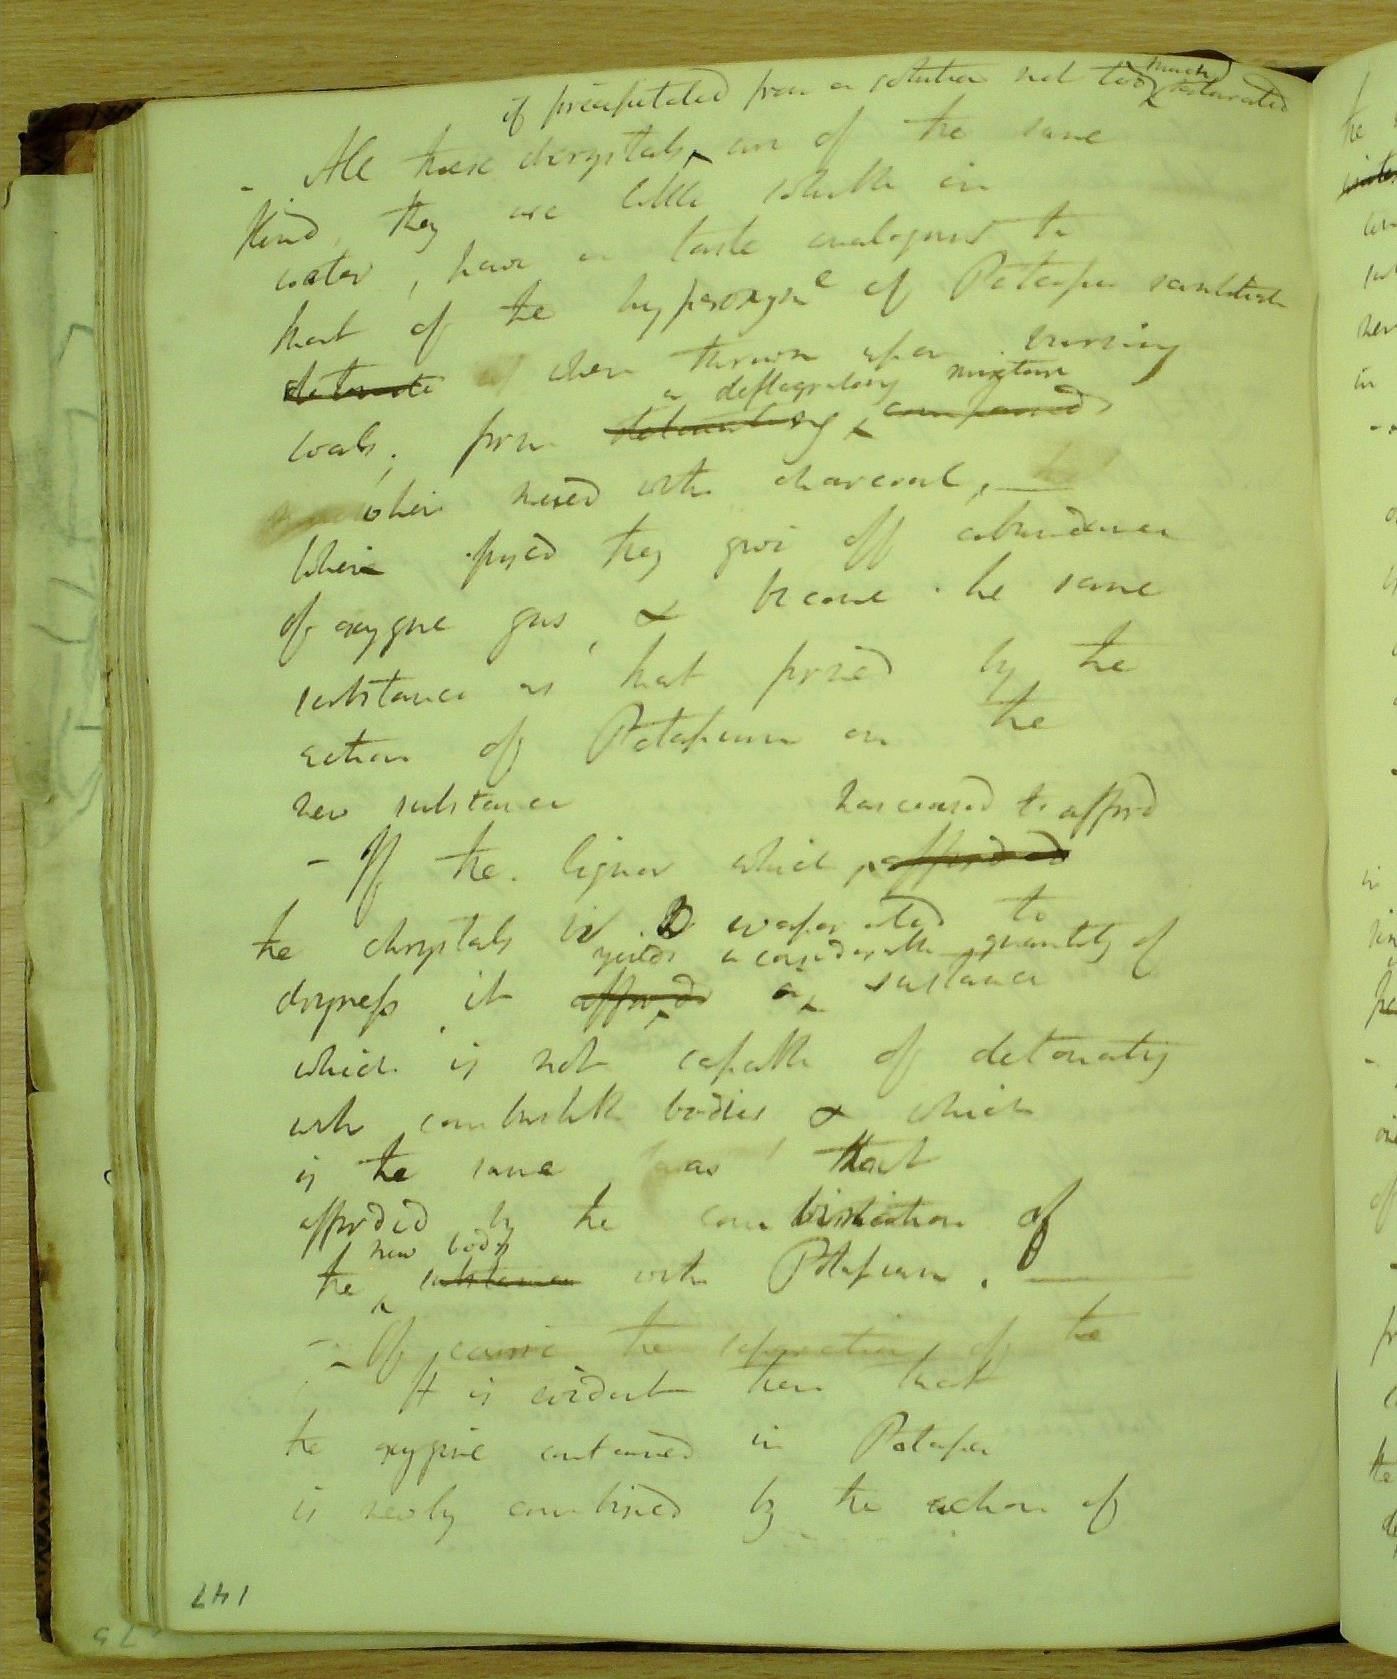 if precipitated from a solution not too much saturated
- All these chrystals are of the same
kind, they are little soluble in
water, have a taste analogous to
that of the hyperoxym^e of Potash scintillate
detonate when thrown upon burning
a deflagrating mixture
coals, form detonating compound
when mixed with charcoal, —
When fused they give off abundance
of oxygene gas, & become the same
substance as that formed by the
action of Potassium on the
new substance
has ceased to afford
- If the liquor which afforded
the chrystals is evaporated to
yields a considerable quantity of
dryness it affords a substance
which is not capable of detonating
with combustible bodies & which
is the same as that
afforded by the combination of
new body
the substance with Potassium. —
- Of course the separation of the
It is evident then that
the oxygene contained in Potash
is newly combined by the action of
147